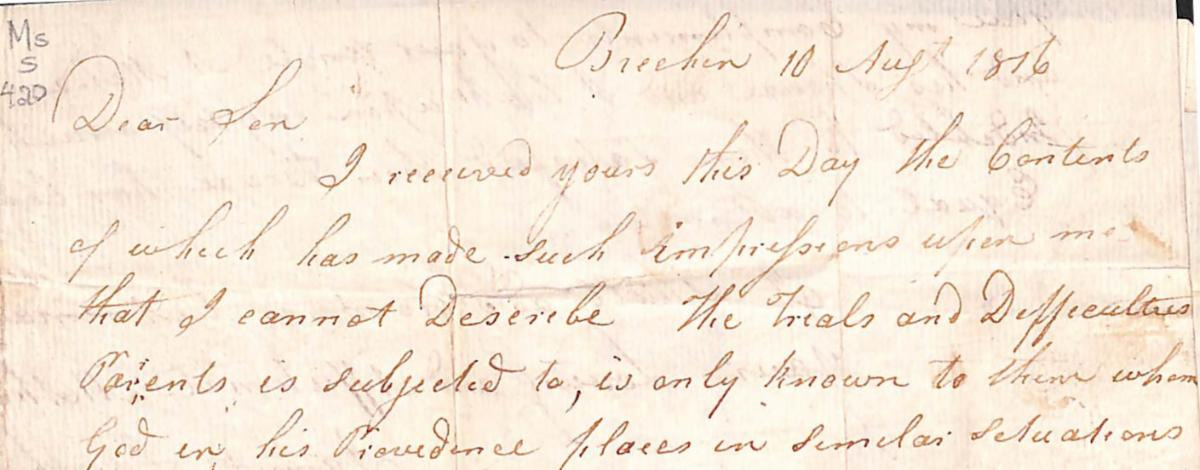 Ms
S
420
Brechin 10 Augt 1816
Dear Son
I received yours this Day the Contents
of which has made such impressions upon me
that I cannot Describe The Trials and Difficulties
Parents is subjected to, is only known to them whom
God in his Providence places in similar situations